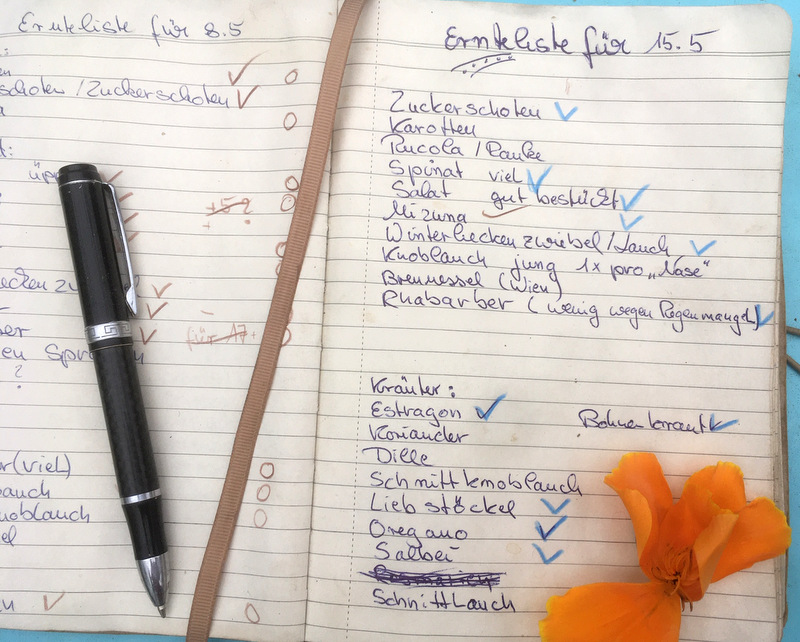 Ernteliste für 8.5
schoten / Zuckerschoten
+5 ?
für 17.
?
(viel)
Ernteliste für 15.5
Zuckerschoten
Karotten
Rucola / Rauke
Spinat viel
Salat gut bestückt
Mizuna
Winterheckenzwiebel / Lauch
Knoblauch jung 1x pro „Nase"
Brennessel (Wien)
Rhabarber (wenig wegen Regenmangel)
Kräuter:
Estragon Bohnenkraut
Koriander
Dille
Schnittknoblauch
Liebstöckel
Oregano
Salbei
Schnittlauch